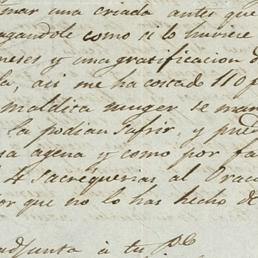 mar una criada antes que
agandole como si lo huviere
meses, y una gratificacion d
la, asi me ha costado 110 p
maldita muger se mar
la podian sufrir, y pued
sa agena y como por fa
4 sacrequerias al Orac
or que no lo has hecho de
adjunta á tu pe